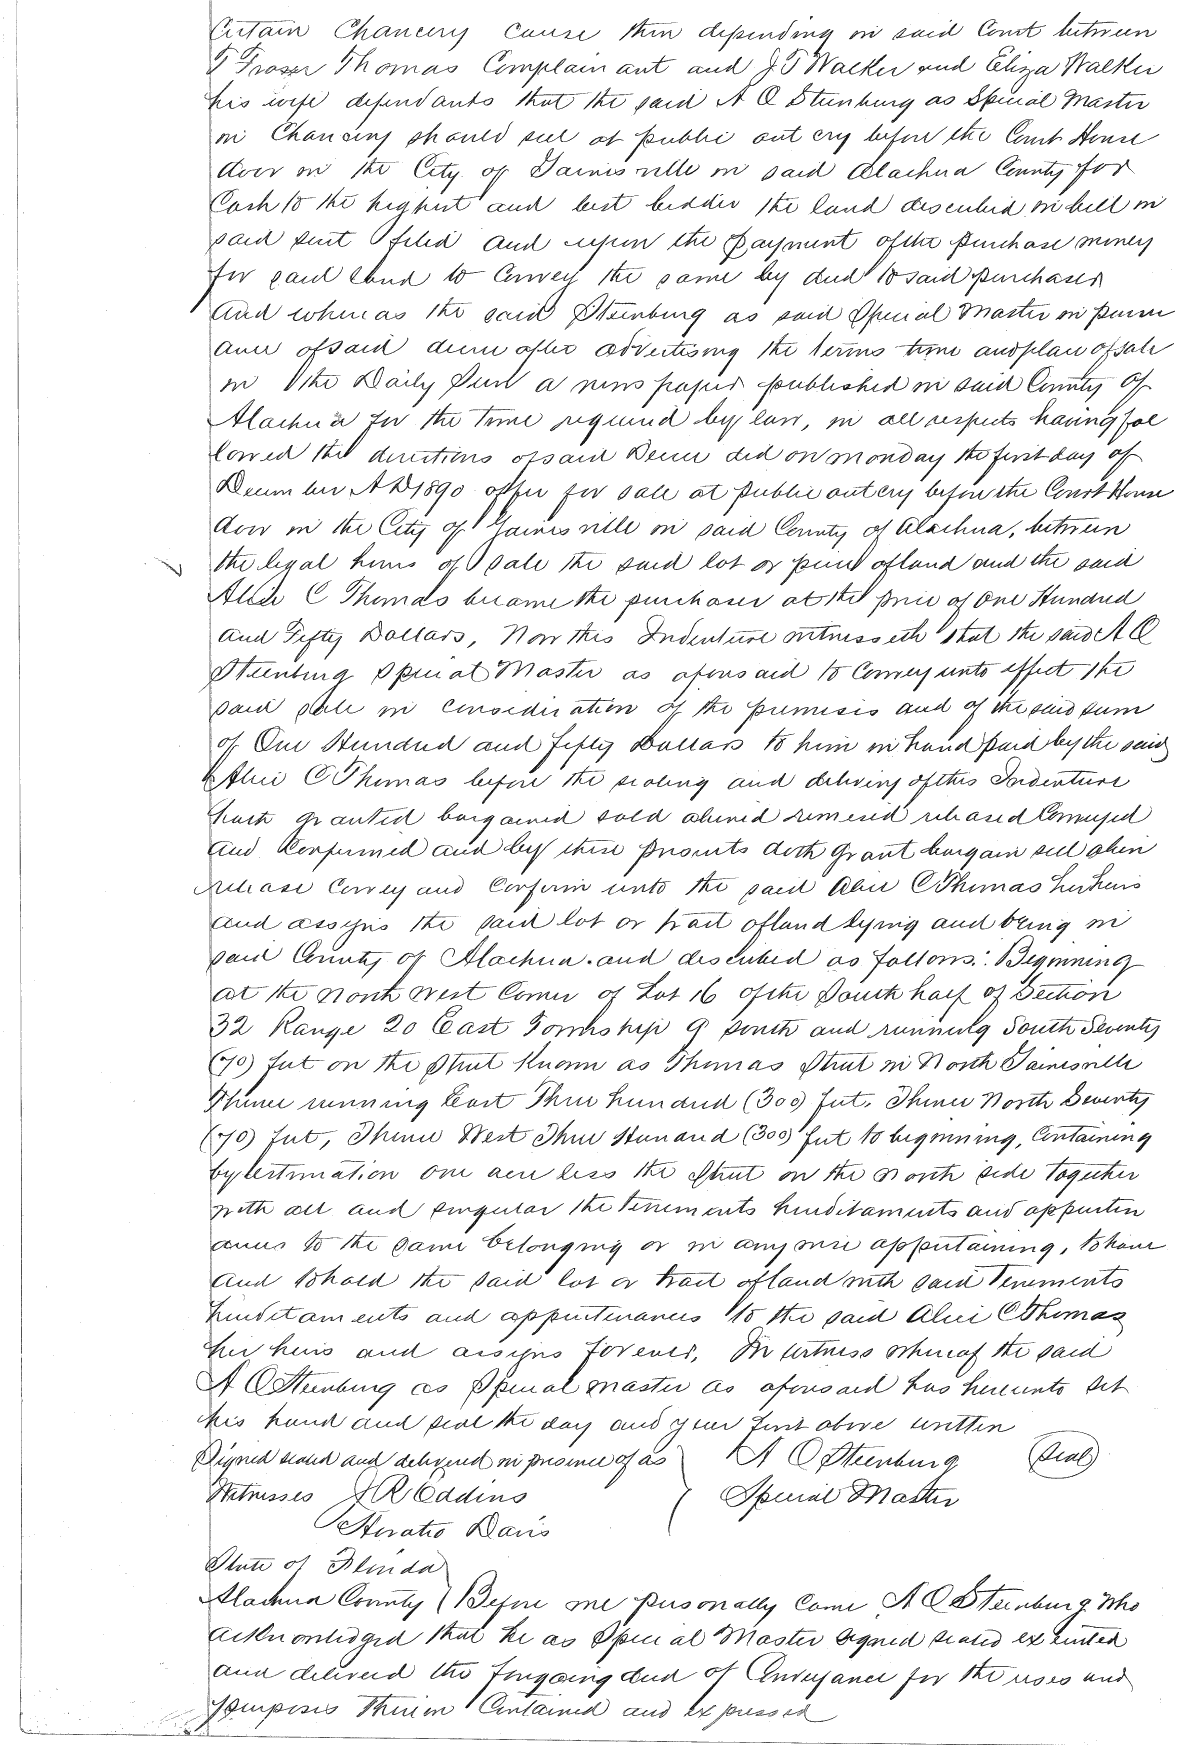 Certain Chancery cause then depending in said Court between
T Fraser Thomas Complainant and J T Walker and Eliza Walker
his wife defendants that the said A C Steenburg as Special Master
in Chancery should sell at public out cry before the Court House
door in the City of Gainesville in said Alachua County for
Cash to the highest and best bidder the land described in bill in
said suit filed and upon the payment of the purchase money
for said land to Convey the same by deed to said purchaser
And whereas the said Steenburg as said Special Master in pursu
ance of said decree after advertising the terms time and place of sale
in the Daily Sun a news paper published in said County of
Alachua for the time required by law, in all respects having fol
lowed the directions of said Decree did on Monday the first day of
December A D 1890 offer for sale at public out cry before the Court House
door in the City of Gainesville in said County of Alachua, between
the legal hours of sale the said lot or piece of land and the said
Alice C Thomas became the purchaser at the price of One Hundred
and Fifty Dollars, Now this Indenture witnesseth that the said A C
Steenburg Special Master as aforesaid to Convey unto effect the
said sale in consideration of the premises and of the said sum
of One Hundred and fifty Dollars to him in hand paid by the said
Alice C Thomas before the sealing and delivery of this Indenture
hath granted bargained sold aliened remised released Conveyed
and Confirmed and by these presents doth grant bargain sell alien
release Convey and Confirm unto the said Alice C Thomas her heirs
and assigns the said lot or tract of land lying and being in
said County of Alachua. and described as follows: Beginning
at the North West Corner of Lot 16 of the South half of Section
32 Range 20 East Township 9 South and running South Seventy
(70) feet on the Street Known as Thomas Street in North Gainesville
Thence running East Three hundred (300) feet. Thence North Seventy
(70) feet, Thence West Three Hundred (300) feet to beginning, Containing
by estimation one acre less the Street on the North side together
with all and singular the tenements hereditaments and appurten
ances to the same belonging or in any wise appertaining, to have
and to hold the said lot or tract of land with said tenements
hereditaments and appurtenances to the said Alice C Thomas
her heirs and assigns forever, In witness whereof the said
A C Steenburg as Special Master as aforesaid has hereunto set
his hand and seal the day and year first above written
Signed sealed and delivered in presence of as A C Steenburg (Seal)
Witnesses J R Eddins Special Master
Horatio Davis
State of Florida
Alachua County Before me personally Came A C Steenburg Who
acknowledged that he as Special Master signed sealed executed
and delivered the foregoing deed of Conveyance for the uses and
purposes Therein Contained and expressed